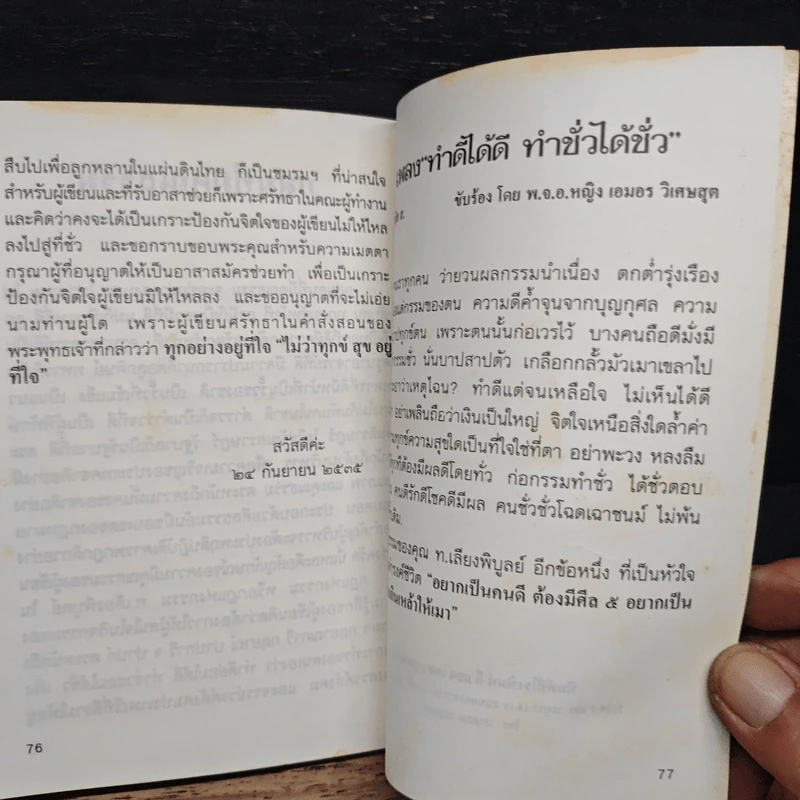 สืบไปเพื่อลูกหลานในแผ่นดินไทย ก็เป็นชมรมฯ ที่น่าสนใจ
สำหรับผู้เขียนและที่รับอาสาช่วยก็เพราะศรัทธาในคณะผู้ทำงาน
และคิดว่าคงจะได้เป็นเกราะป้องกันจิตใจของผู้เขียนไม่ให้ไหล
ลงไปสู่ที่ชั่ว และขอกราบขอบพระคุณสำหรับความเมตตา
กรุณาผู้ที่อนุญาตให้เป็นอาสาสมัครช่วยทำ เพื่อเป็นเกราะ
ป้องกันจิตใจผู้เขียนมิให้ไหลลง และขออนุญาตที่จะไม่เอ่ย
นามท่านผู้ใด เพราะผู้เขียนศรัทธาในคำสั่งสอนของ
พระพุทธเจ้าที่กล่าวว่า ทุกอย่างอยู่ที่ใจ "ไม่ว่าทุกข์ สุข อยู่
ที่ใจ"
สวัสดีค่ะ
๒๔ กันยายน ๒๕๓๕
76
เพลง"ทำดีได้ดี ทำชั่วได้ชั่ว"
ขับร้อง โดย พ.จ.อ.หญิง เอมอร วิเศษสุต
ทุกคน ว่ายวนผลกรรมนำเนื่อง ตกต่ำรุ่งเรือง
กรรมของตน ความดีค้ำจุนจากบุญกุศล ความ
ทุกข์ตน เพราะตนนั้นก่อเวรไว้ บางคนถือดีมั่งมี
นั่นบาปสาปตัว เกลือกกลั้วมัวเมาเขลาไป
ว่าเหตุไฉน? ทำดีแต่จนเหลือใจ ไม่เห็นได้ดี
อย่าเพลินถือว่าเงินเป็นใหญ่ จิตใจเหนือสิ่งใดล้ำค่า
ทุกข์ความสุขใดเป็นที่ใจใช่ที่ตา อย่าพะวง หลงลืม
ที่ต้องมีผลดีโดยทั่ว ก่อกรรมทำชั่ว ได้ชั่วตอบ
คนดีรักดีโชคดีมีผล คนชั่วชั่วโฉดเฉาชนม์ ไม่พ้น
ของคุณ ท.เลียงพิบูลย์ อีกข้อหนึ่ง ที่เป็นหัวใจ
ชีวิต "อยากเป็นคนดี ต้องมีศีล ๕ อยากเป็น
เหล้าให้เมา"
77